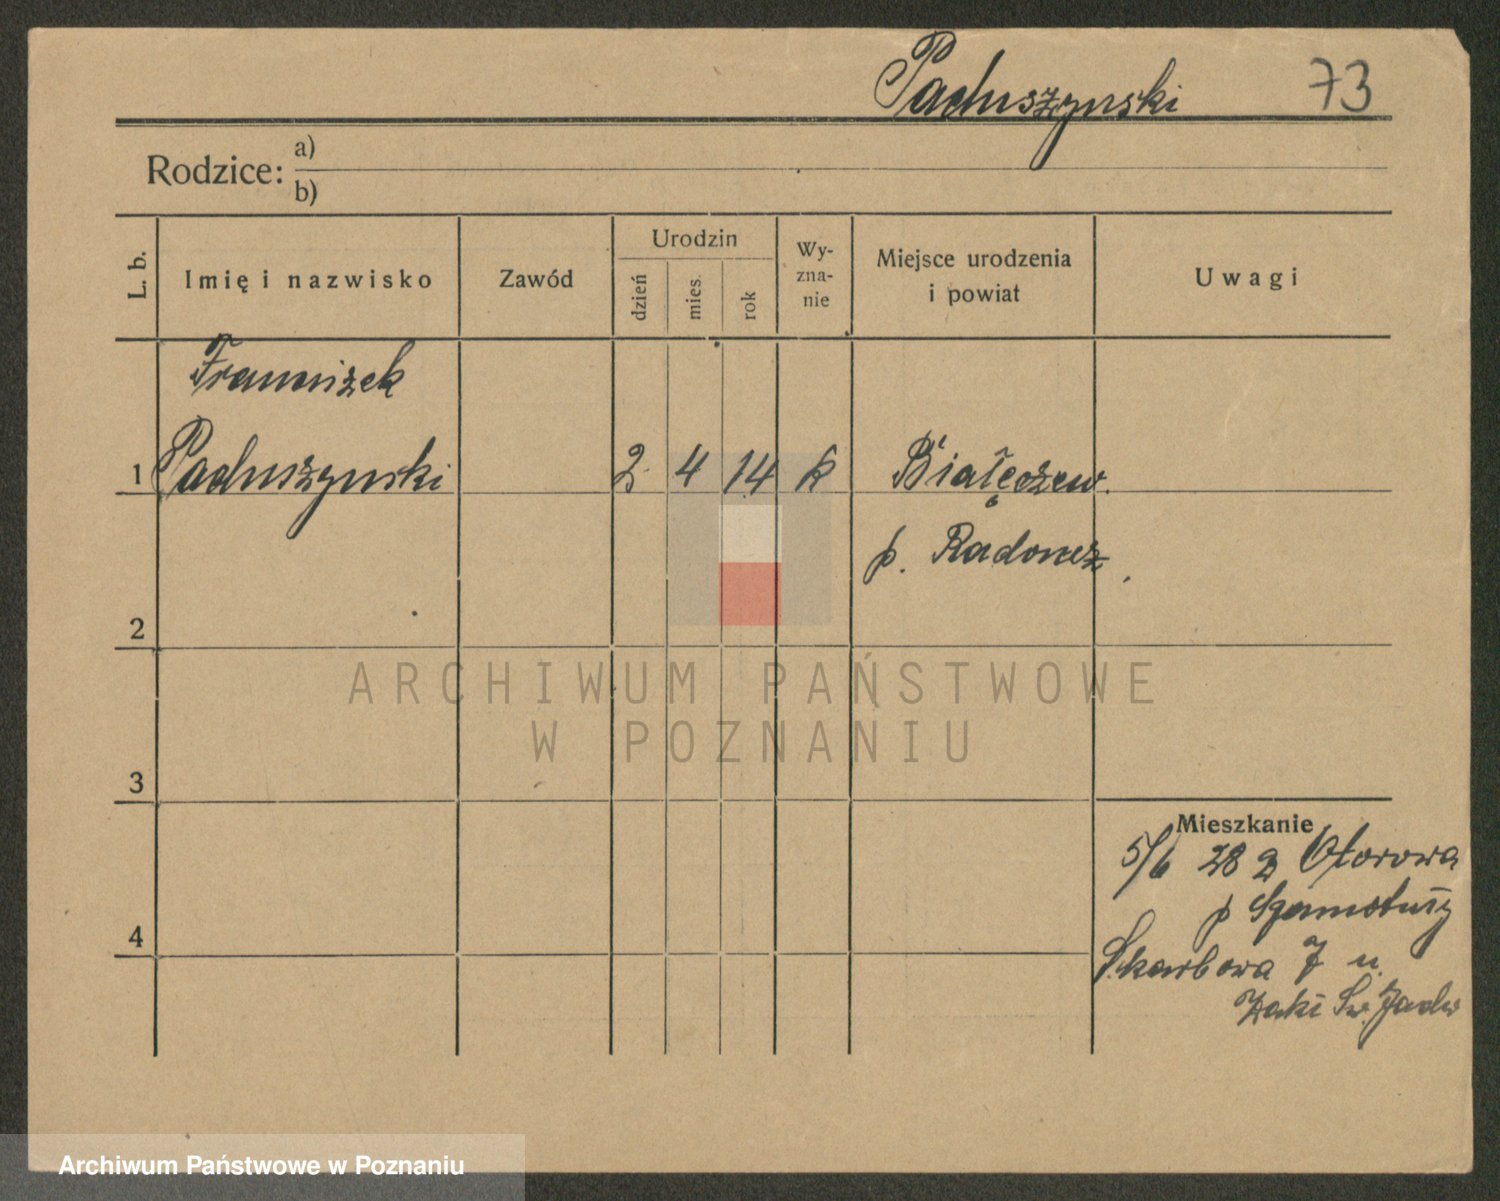 Paduszynski 73
Rodzice: a)
b)
L. b. Imię i nazwisko Zawód Urodzin dzień mies. rok Wy-zna-nie Miejsce urodzenia i powiat Uwagi
Franciszek
1 Paduszynski 2 4 14 k Białężew
p. Radomsz
2
ARCHIWUM PAŃSTWOWE
W POZNANIU
3
Mieszkanie
5/6 28 z Otorowa
p Szamotuły
4
Skarbowa 7 u.
Św. Jadw
Archiwum Państwowe w Poznaniu